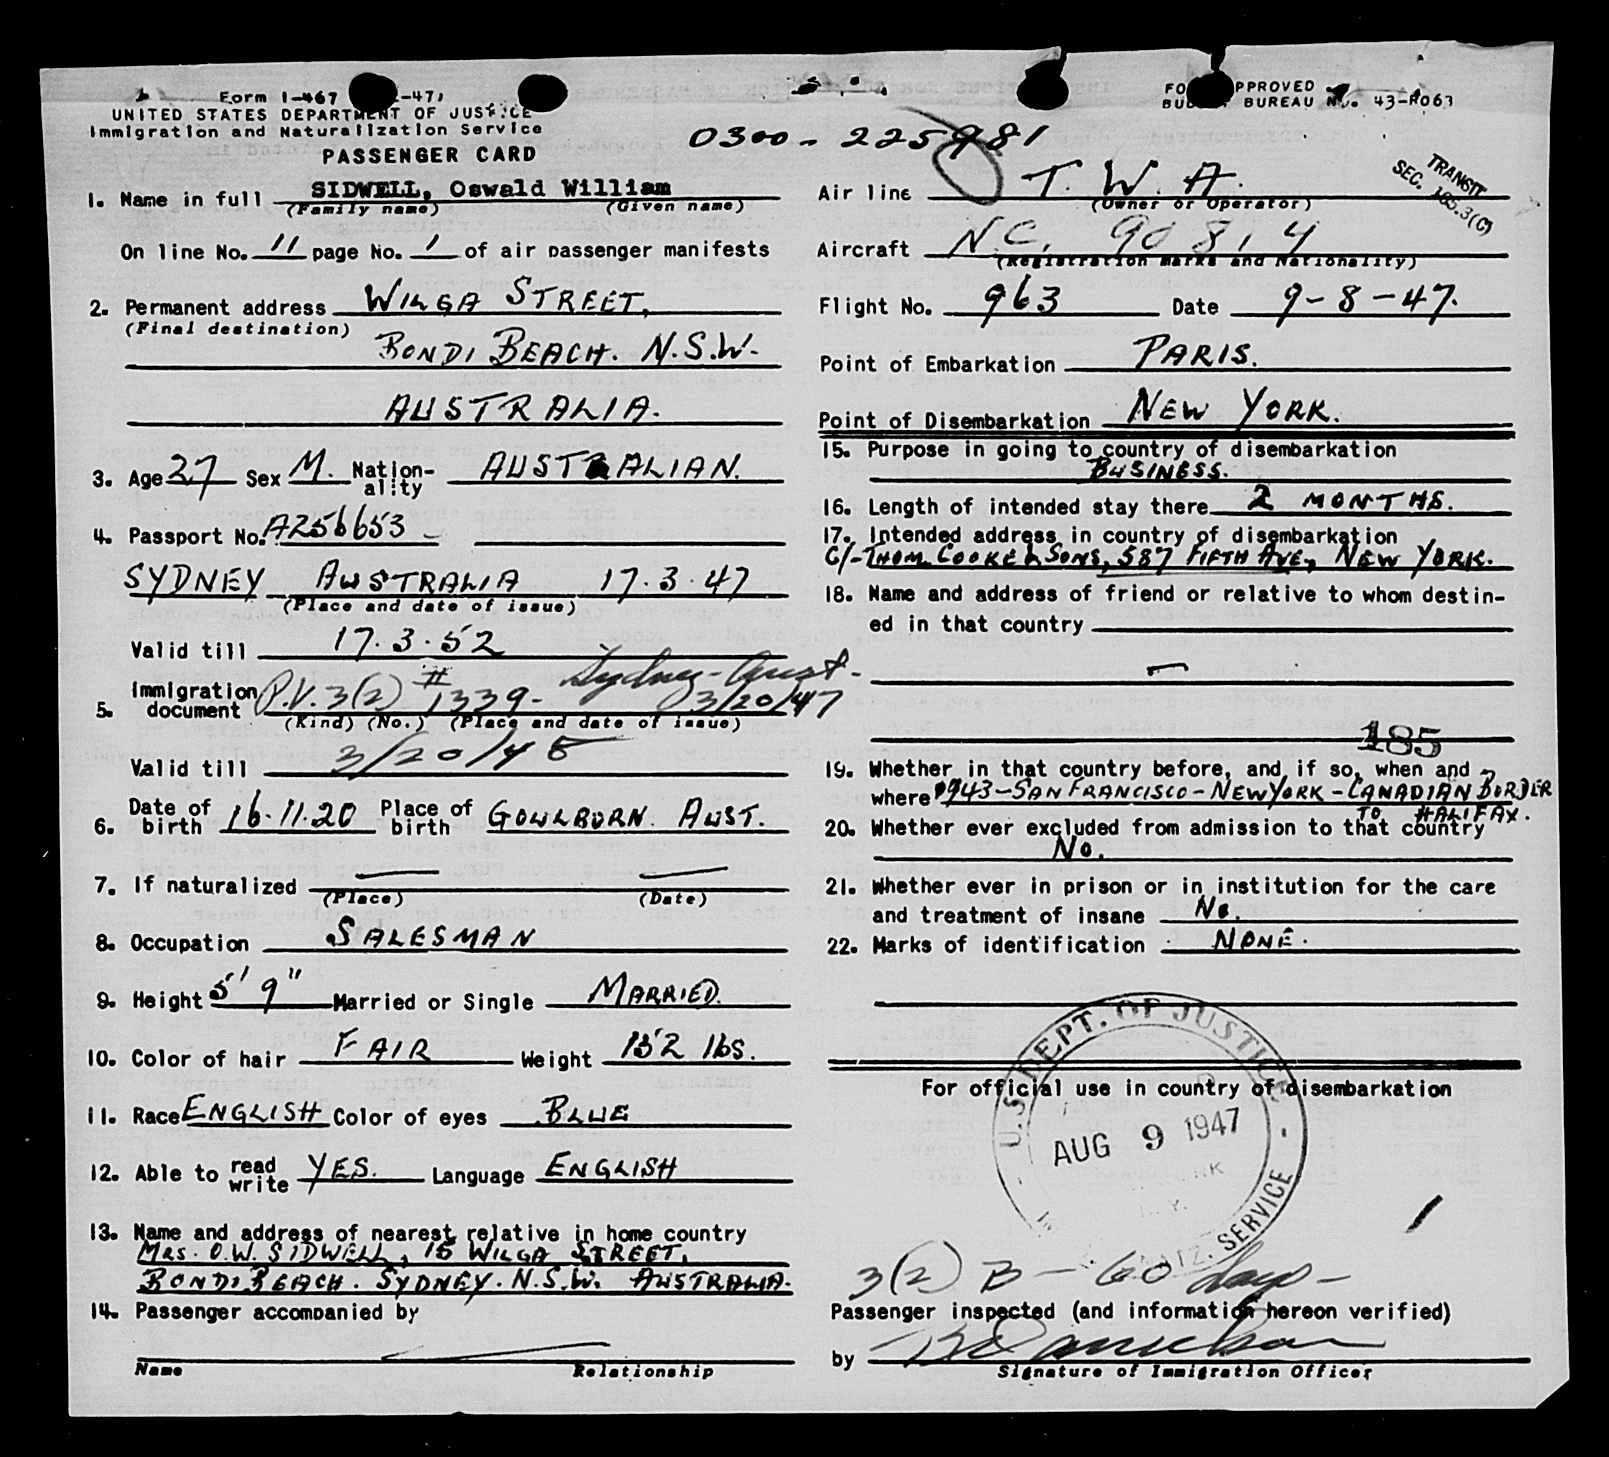 Form I-467 -47)
UNITED STATES DEPARTMENT OF JUSTICE
Immigration and Naturalization Service
PASSENGER CARD
0300-225981
FORM APPROVED
BUDGET BUREAU No. 43-R063
TRANSIT
SEC. 185.3(C)
1. Name in full SIDWELL, Oswald William
(Family name) (Given name)
On line No. 11 page No. 1 of air passenger manifests
2. Permanent address WILGA STREET,
(Final destination)
BONDI BEACH. N.S.W.
AUSTRALIA.
3. Age 27 Sex M. Nation-
ality AUSTRALIAN.
4. Passport No. A256653
SYDNEY AUSTRALIA 17.3.47
(Place and date of issue)
Valid till 17.3.52
5. Immigration
document P.V. 3(2) # 1339- Sydney-Aust. 3/20/47
(Kind) (No.) (Place and date of issue)
Valid till 3/20/48
6. Date of
birth 16.11.20 Place of
birth GOULBURN. AUST.
7. If naturalized
(Place) (Date)
8. Occupation SALESMAN
9. Height 5' 9" Married or Single MARRIED.
10. Color of hair FAIR Weight 152 lbs.
11. Race ENGLISH Color of eyes BLUE
12. Able to read
write YES. Language ENGLISH
13. Name and address of nearest relative in home country
MRS. O.W. SIDWELL, 15 WILGA STREET,
BONDI BEACH. SYDNEY. N.S.W. AUSTRALIA.
14. Passenger accompanied by
Name Relationship
Air line T. W. A.
(Owner or Operator)
Aircraft N.C. 90814
(Registration marks and Nationality)
Flight No. 963 Date 9-8-47.
Point of Embarkation PARIS.
Point of Disembarkation NEW YORK.
15. Purpose in going to country of disembarkation
BUSINESS.
16. Length of intended stay there 2 MONTHS.
17. Intended address in country of disembarkation
C/- THOM. COOKE & SONS, 587 FIFTH AVE, NEW YORK.
18. Name and address of friend or relative to whom destin-
ed in that country
185
19. Whether in that country before, and if so, when and
where 1943-SAN FRANCISCO-NEW YORK-CANADIAN BORDER
TO HALIFAX.
20. Whether ever excluded from admission to that country
No.
21. Whether ever in prison or in institution for the care
and treatment of insane No.
22. Marks of identification NONE.
For official use in country of disembarkation
U.S. DEPT. OF JUSTICE
AUG 9 1947
N.Y.
SERVICE
3(2) B - 60 days-
Passenger inspected (and information hereon verified)
by
Signature of Immigration Officer